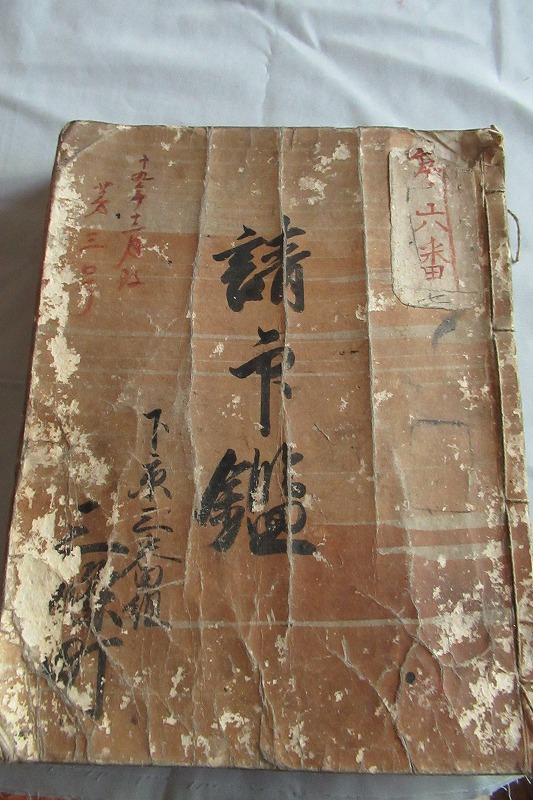 第六番
請印鑑
下京三番組
三條町
十九年十二月改
第三号